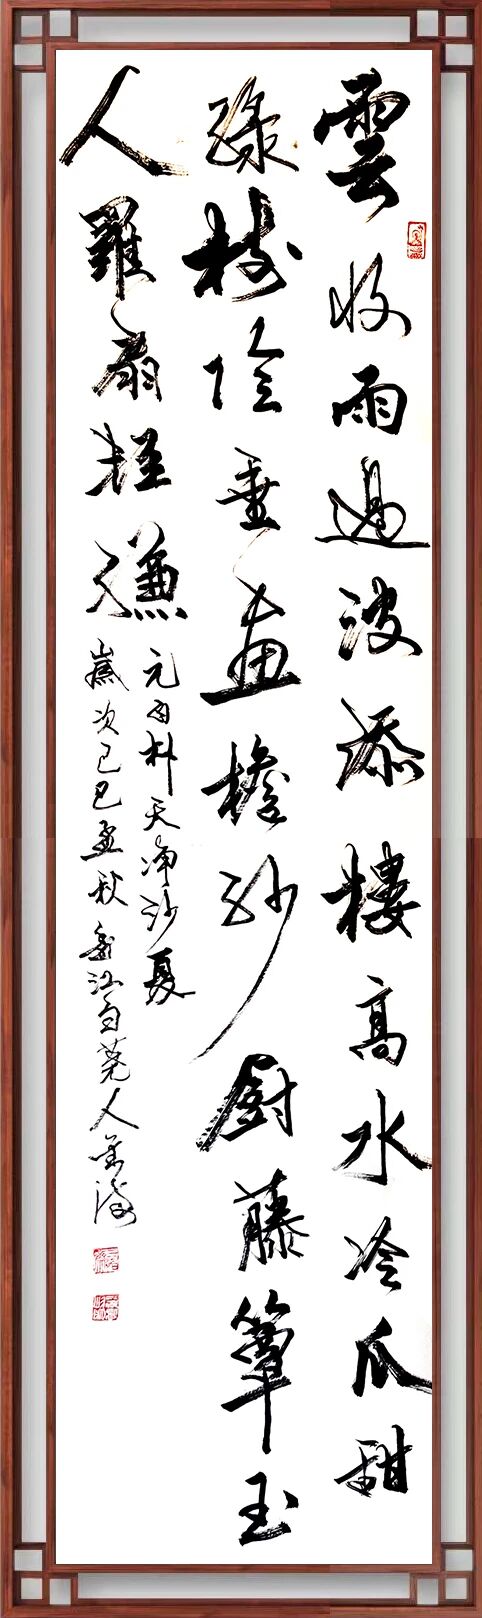 雲收雨過波添樓高水冷瓜甜
綠樹陰垂畫檐紗厨藤簟玉
人羅扇輕縑
元白朴天净沙夏
歲次己巳孟秋江白人